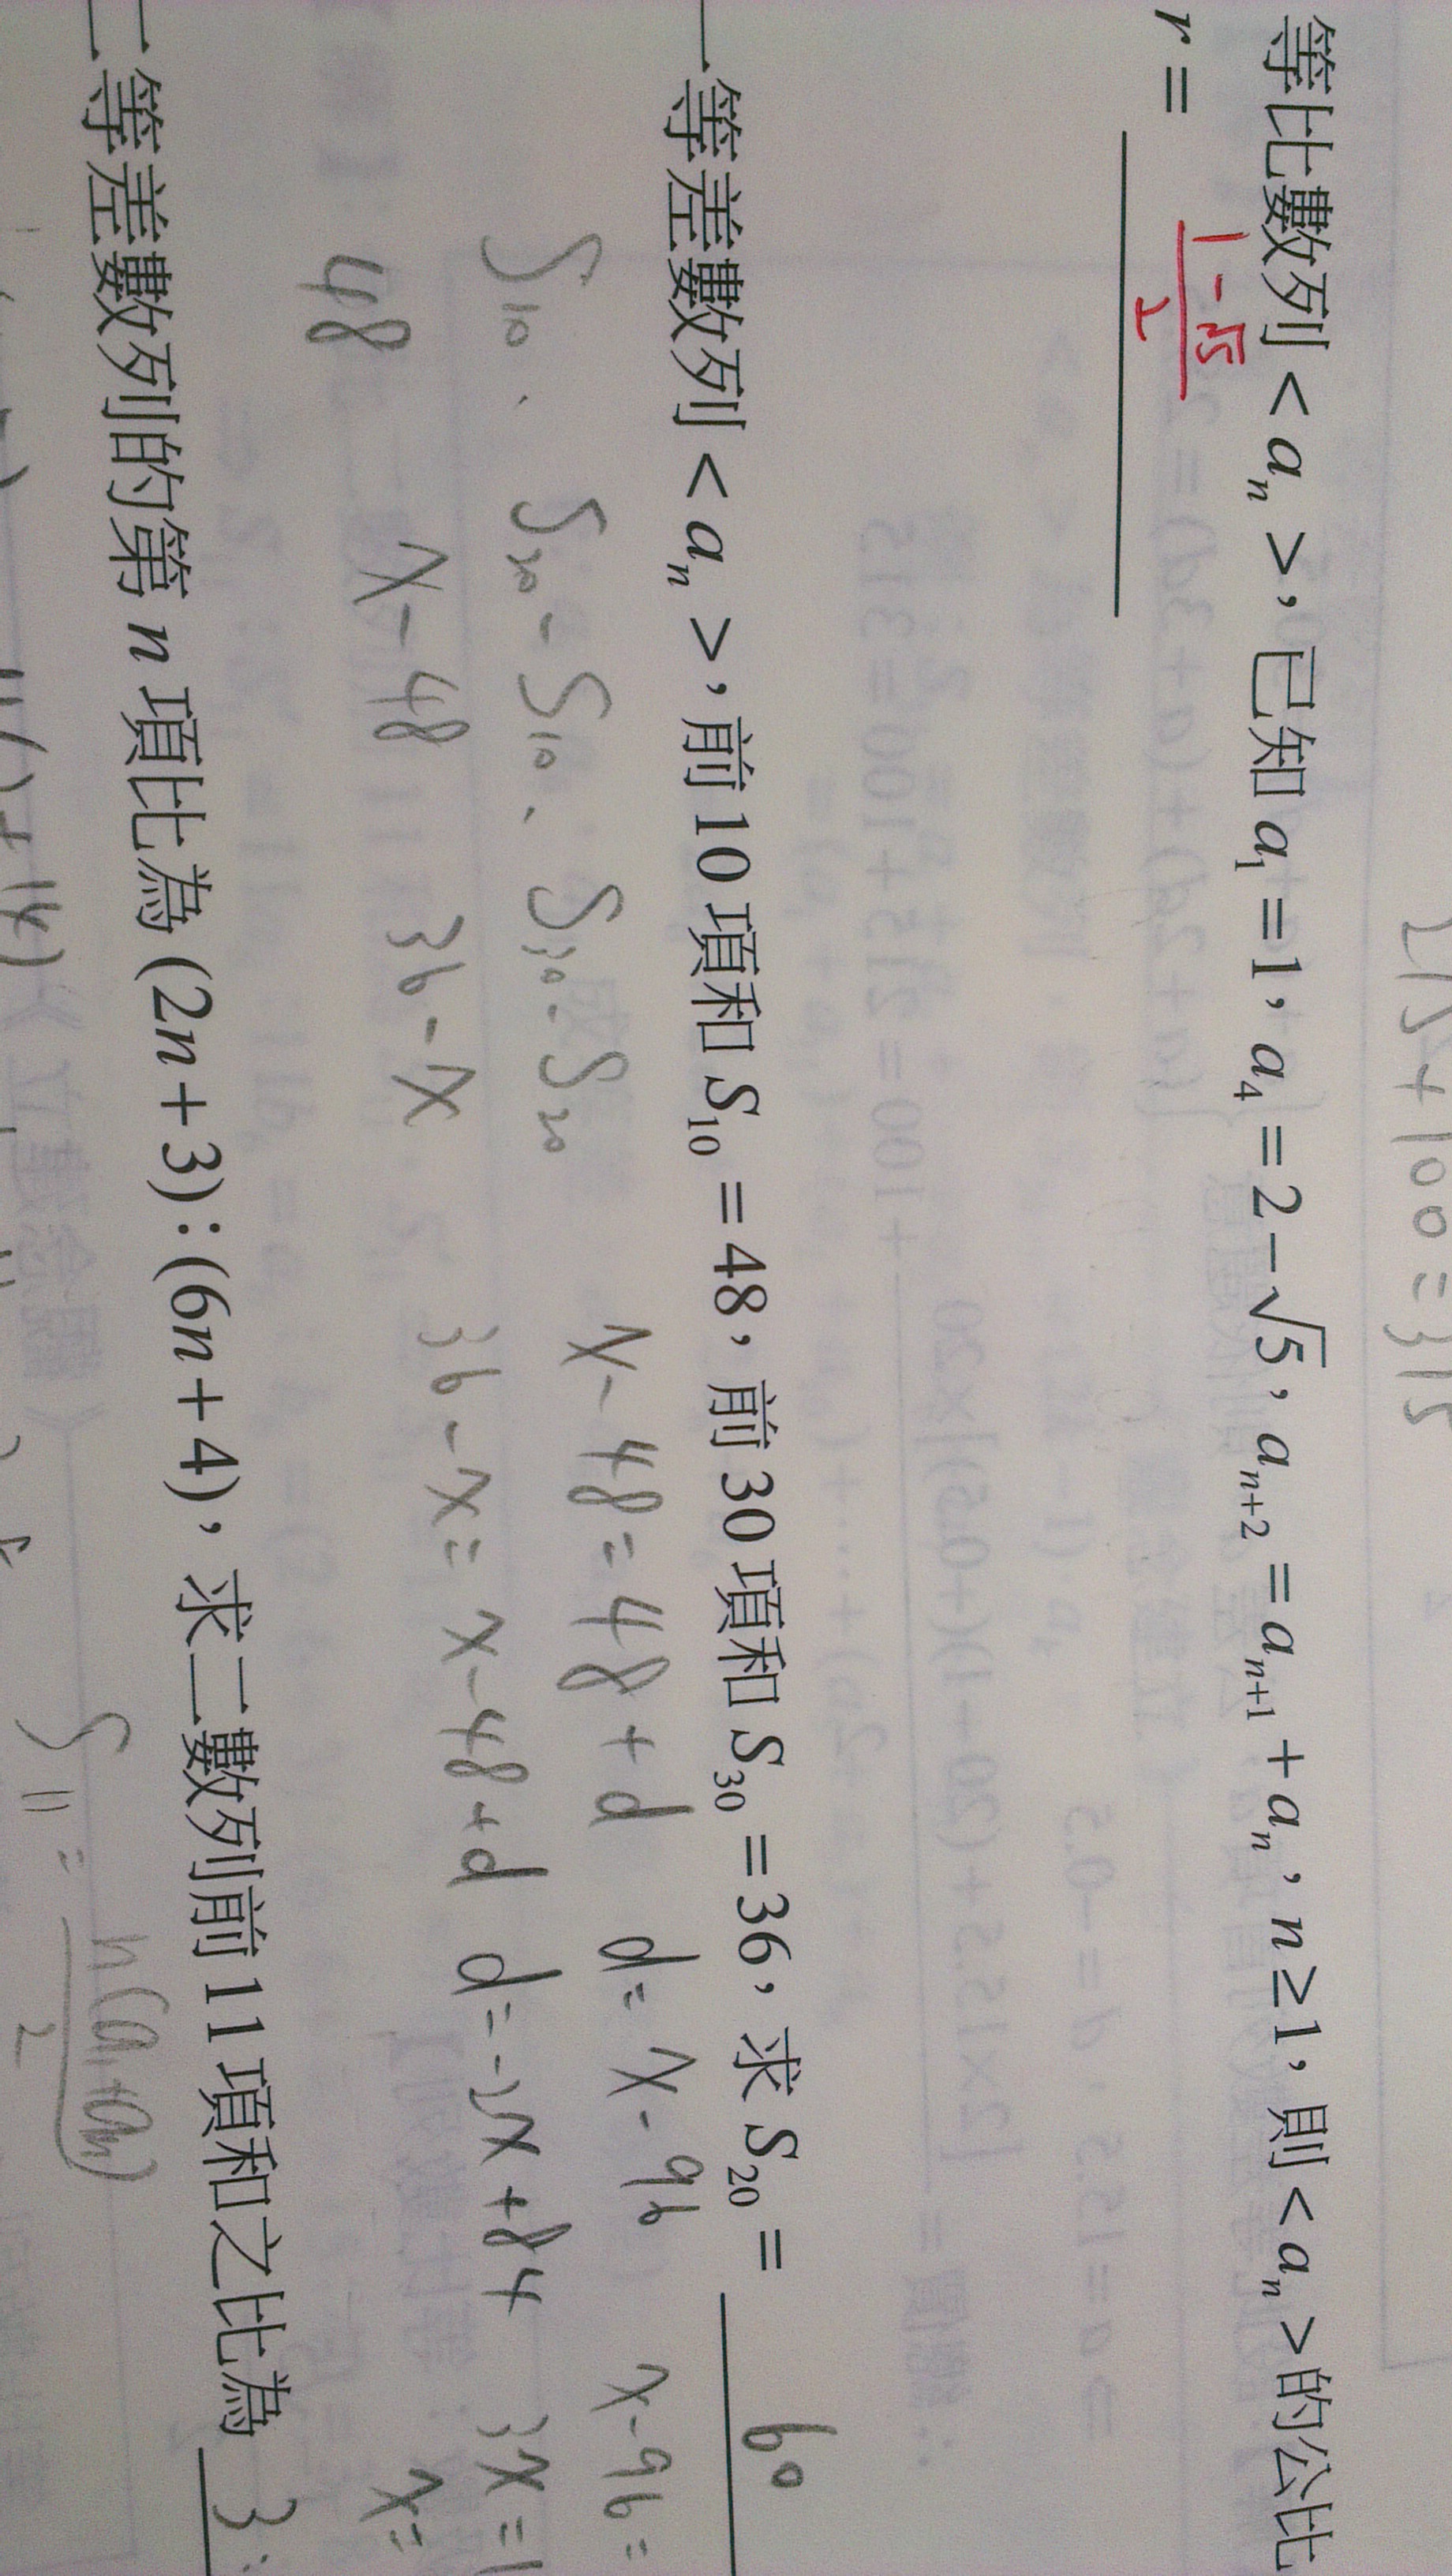 217+100=317
等比數列<aₙ>，已知 a₁=1，a₄=2-√5，aₙ₊₂=aₙ₊₁+aₙ，n≥1，則<aₙ>的公比
r= (1-√5)/2
一等差數列<aₙ>，前10項和 S₁₀=48，前30項和 S₃₀=36，求 S₂₀= 60
S₁₀、S₂₀-S₁₀、S₃₀-S₂₀ x-48=48+d d=x-96 x-96=
48 x-48 36-x 36-x=x-48+d d=-2x+84 3x=1
x=
二等差數列的第 n 項比為 (2n+3):(6n+4)，求二數列前11項和之比為 3:
S₁₁= n(a₁+aₙ)/2